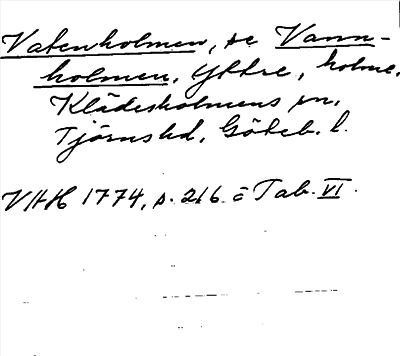 Vatenholmen, se Vann-
holmen, Yttre, holme,
Klädesholmens sn,
Tjörns hd, Göteb. l.
VAH 1774, s. 216 o Tab. VI.